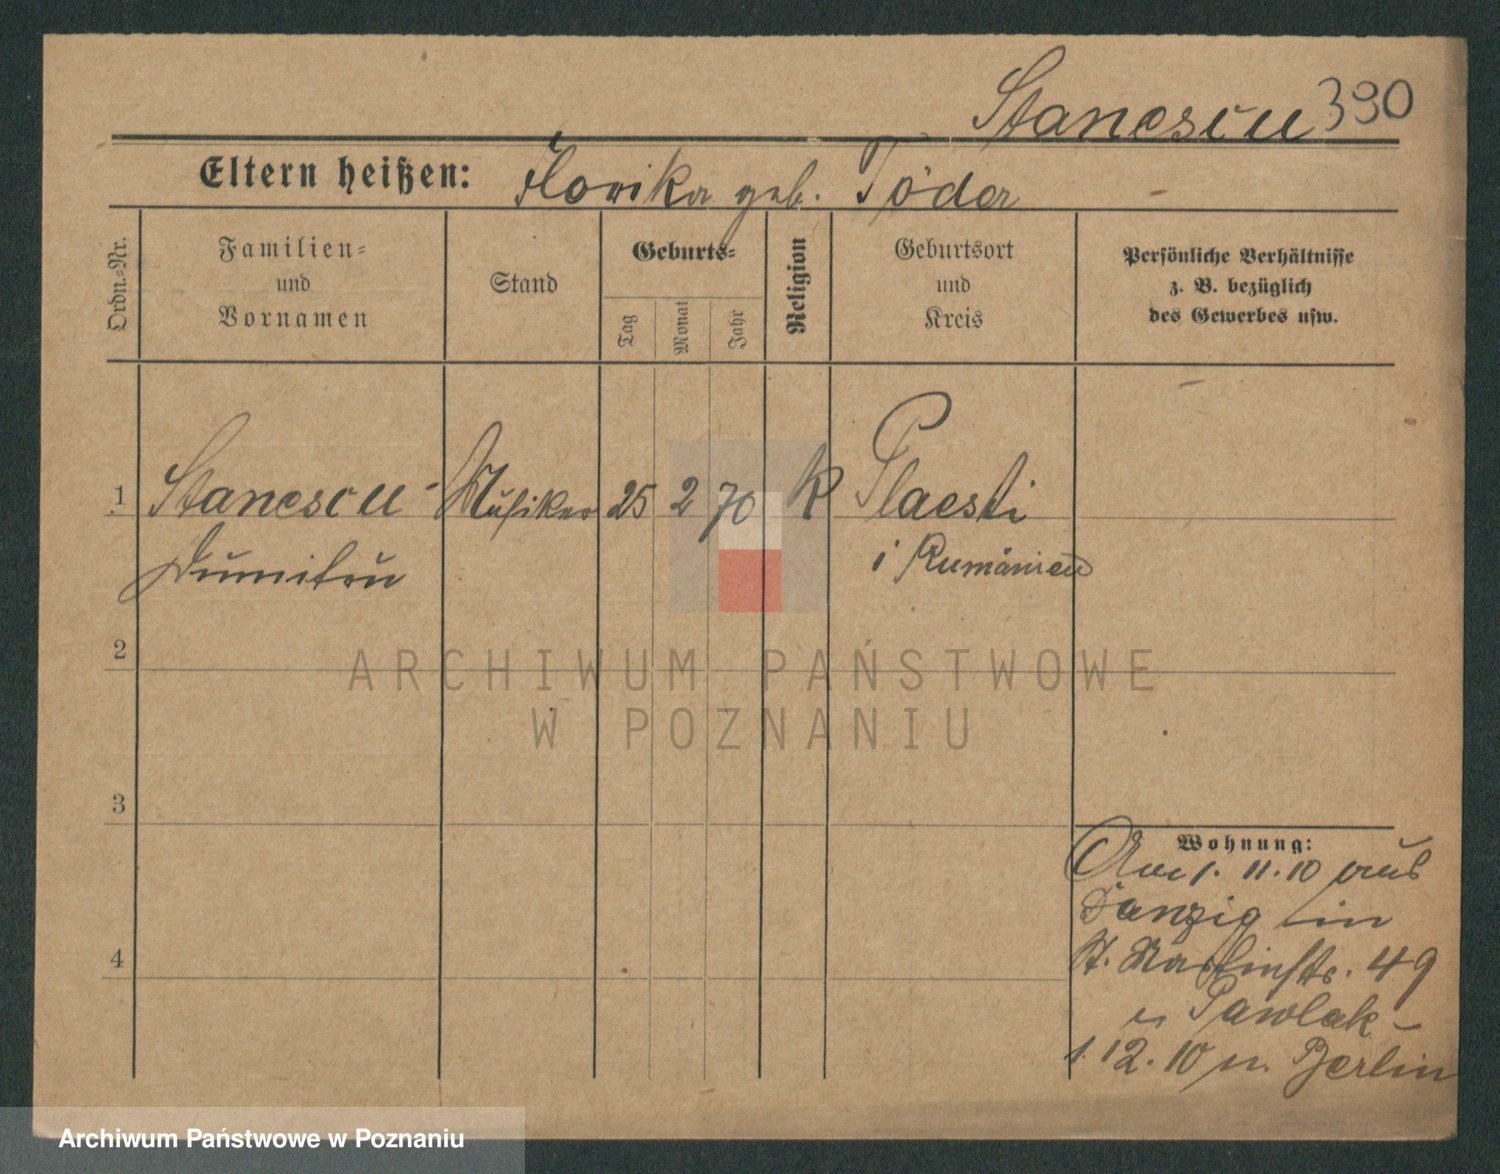 Stanescu 390
Eltern heißen: Florika geb. Töder
Ordn.-Nr.
Familien-
und
Vornamen
Stand
Geburts-
Tag
Monat
Jahr
Religion
Geburtsort
und
Kreis
Persönliche Verhältnisse
z. B. bezüglich
des Gewerbes usw.
1 Stanescu - Musiker 25 2 70 K Plaesti
Dumitru i Rumänien
2
ARCHIWUM PAŃSTWOWE
W POZNANIU
3
Wohnung:
Am 1. 11. 10 aus
Danzig in
4 St. Martinstr. 49
Pawlak -
1. 12. 10 n. Berlin
Archiwum Państwowe w Poznaniu